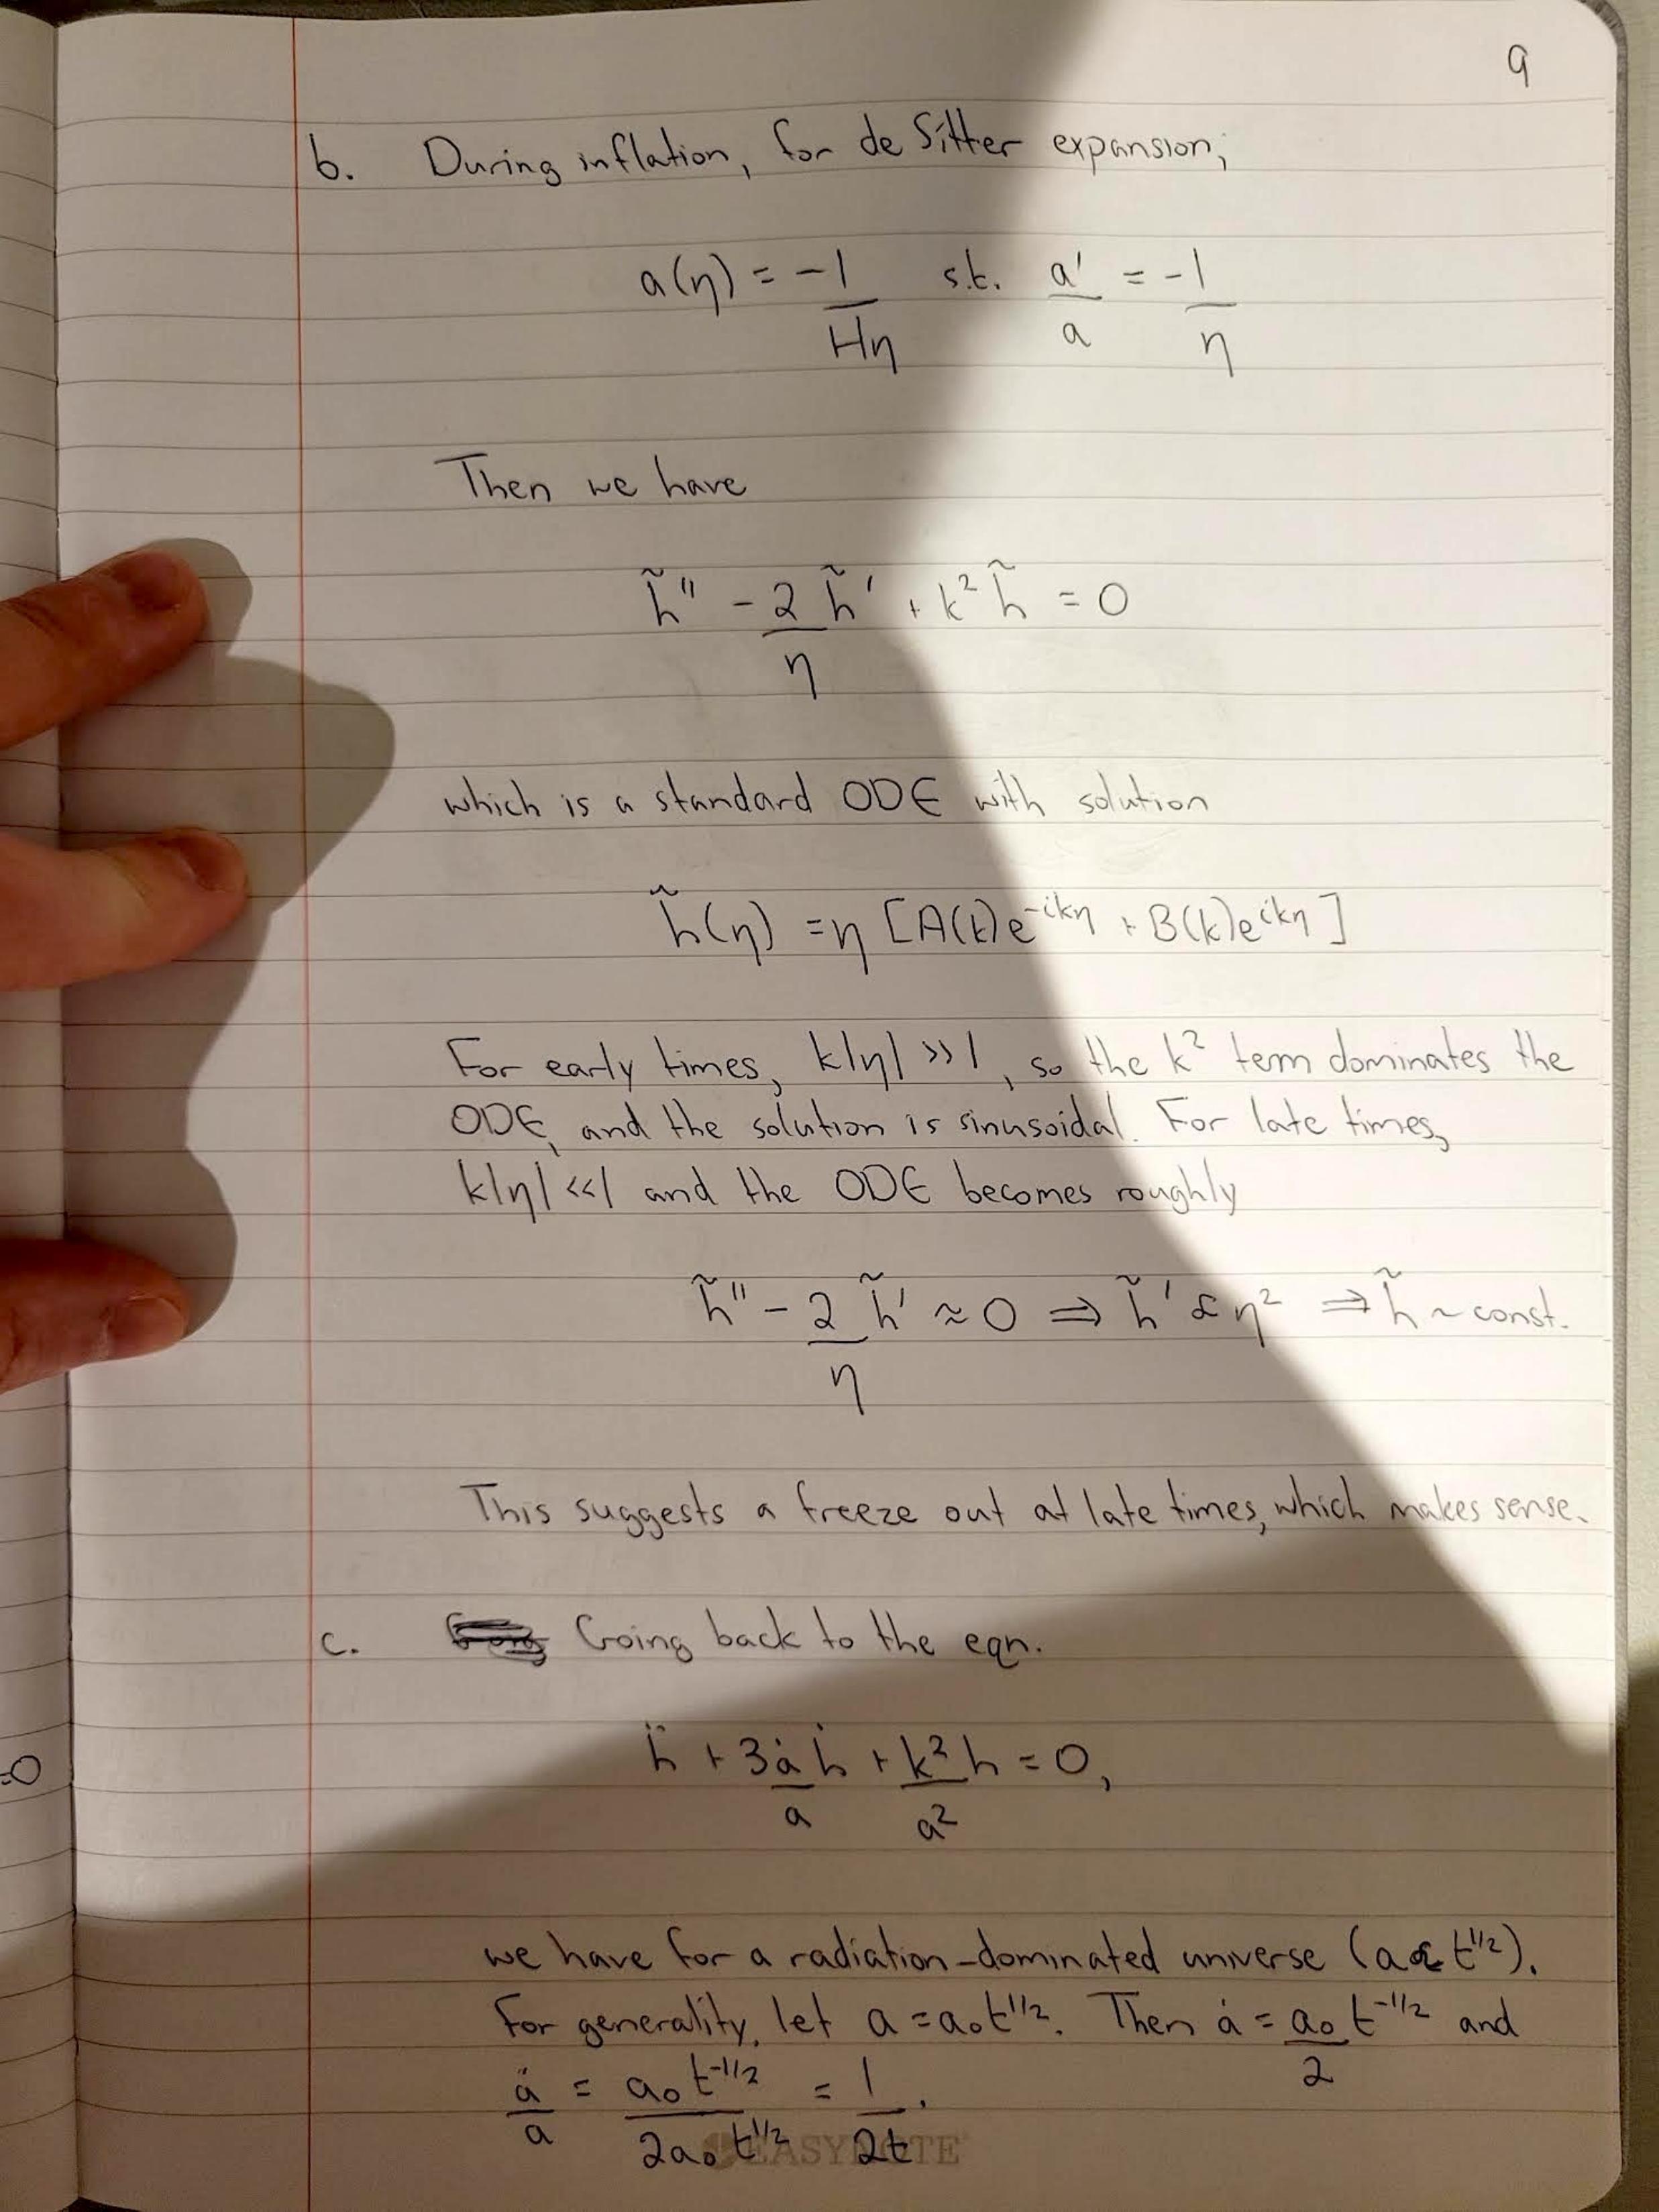 9
b. During inflation, for de Sitter expansion;
a(η) = -1/Hη s.t. a'/a = -1/η
Then we have
h̃'' - 2/η h̃' + k² h̃ = 0
which is a standard ODE with solution
h̃(η) = η [A(k)e^{-ikη} + B(k)e^{ikη}]
For early times, k|η| >> 1, so the k² term dominates the
ODE, and the solution is sinusoidal. For late times,
k|η| << 1 and the ODE becomes roughly
h̃'' - 2/η h̃' ≈ 0 ⇒ h̃' ∝ η² ⇒ h̃ ~ const.
This suggests a freeze out at late times, which makes sense.
c. Going back to the eqn.
ḧ + 3ȧ/a ḣ + k²/a² h = 0,
=0
we have for a radiation-dominated universe (a ∝ t^{1/2}).
For generality, let a = a₀t^{1/2}. Then ȧ = a₀/2 t^{-1/2} and
ȧ/a = a₀t^{-1/2}/2a₀t^{1/2} = 1/2t.
EASYNOTE